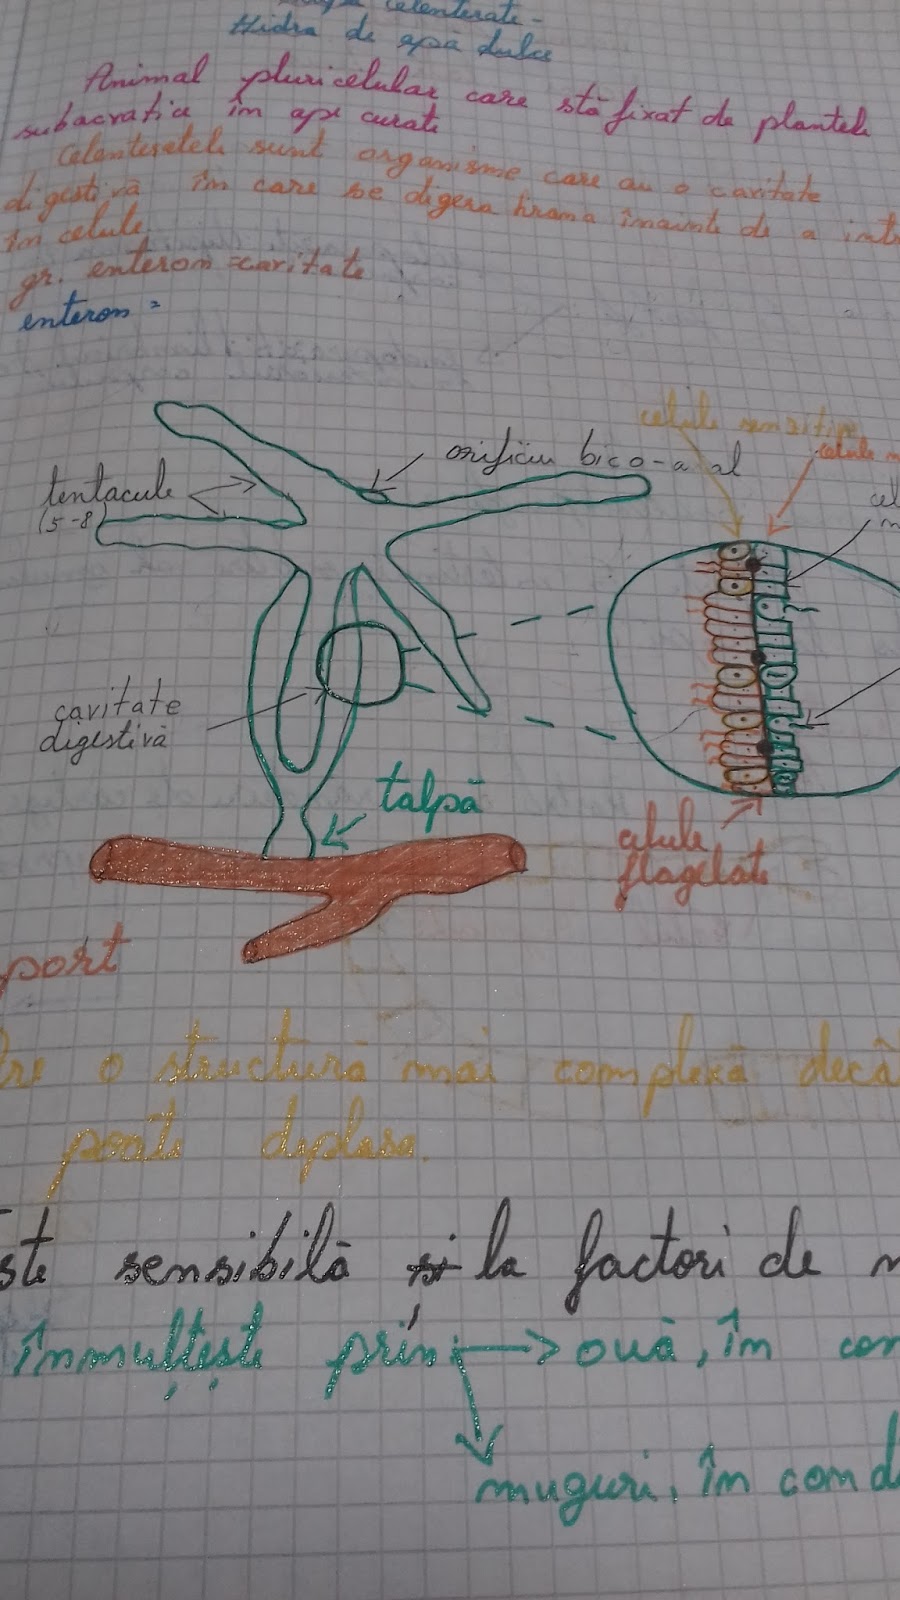 celenterate -
Hidra de apă dulce
Animal pluricelular care stă fixat de plantele
subacvatice în ape curate
Celenteratele sunt organisme care au o cavitate
digestivă în care se digera hrana înainte de a int
în celule
gr. enteron = cavitate
enteron =
celule senzitive
celule
orificiu buco-anal
tentacule
(5-8)
cel
cavitate
digestivă
talpă
celule
flagelate
port
o structură mai complexă decâ
poate deplasa.
ste sensibilă la factori de m
înmulțește prin: → ouă, în con
muguri, în cond